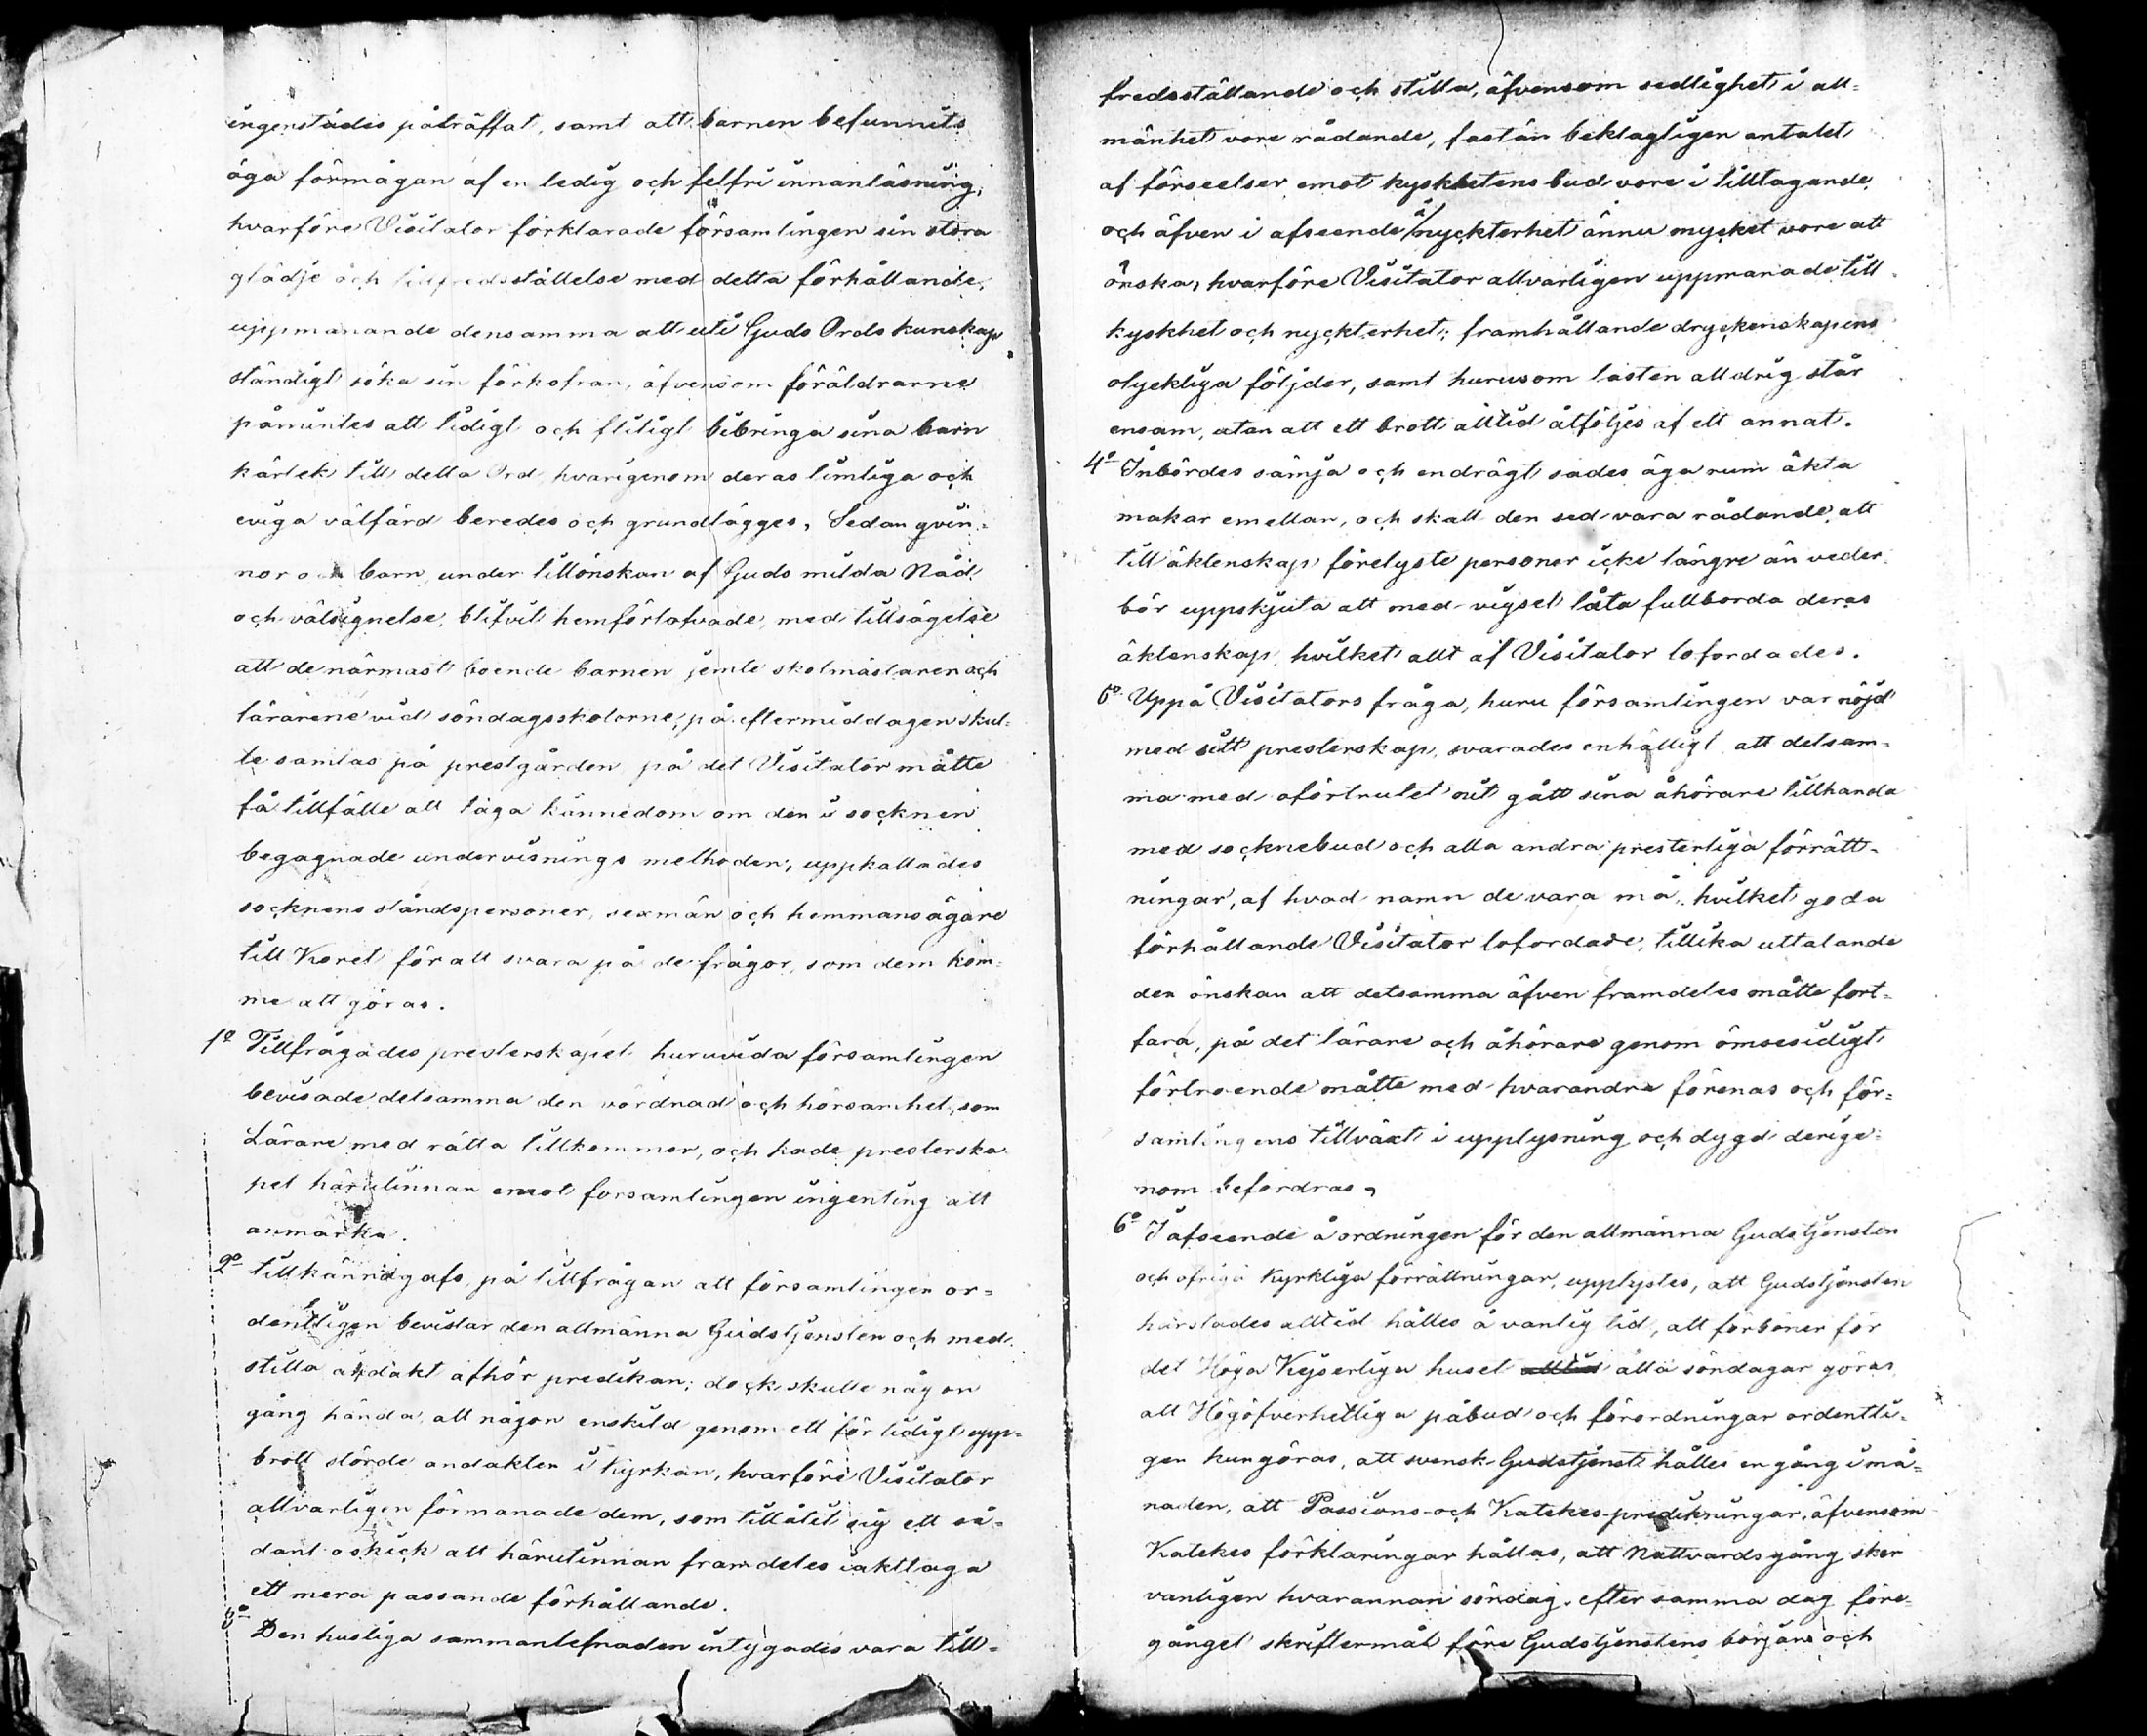 ingenstädes påträffat, samt att barnen befunnits
äga förmågan af en ledig och felfri innanläsning,
hvarföre Visitator förklarade församlingen sin stora
glädje och tillfredsställelse med detta förhållande,
uppmanande densamma att uti Guds Ords kunskap
ständigt söka sin förkofran, äfvensom föräldrarne
påmintes att tidigt och flitigt bibringa sina barn
kärlek till detta Ord, hvarigenom deras timliga och
eviga välfärd beredes och grundlägges. Sedan qvin=
nor och barn, under tillönskan af Guds milda Nåd
och välsignelse, blifvit hemförlofvade, med tillsägelse
att de närmast boende barnen jemte skolmästaren och
lärarene vid söndagsskolorne, på eftermiddagen skul=
le samlas på prestgården, på det Visitator måtte
få tillfälle att taga kännedom om den i socknen
begagnade undervisnings methoden, uppkallades
socknens ståndspersoner, sexmän och hemmansägare
till Koret för att svara på de frågor, som dem kom=
me att göras.
1o Tillfrågades presterskapet huruvida församlingen
bevisade detsamma den vördnad och hörsamhet, som
Lärare med rätta tillkommer, och hade presterska
pet härutinnan emot församlingen ingenting att
anmärka.
2o tillkännagafs, på tillfrågan att församlingen or=
dentligen bevistar den allmänna Gudstjensten och med
stilla andakt afhör predikan; dock skulle någon
gång hända, att någon enskild genom ett för tidigt upp=
brott störde andakten i Kyrkan, hvarföre Visitator
allvarligen förmanade dem, som tillåtit sig ett så=
dant oskick att härutinnan framdeles iakttaga
ett mera passande förhållande.
3o Den husliga sammanlefnaden intygades vara till=
fredsställande och stilla, äfvensom sedlighet i all=
mänhet vore rådande, fastän beklagligen antalet
af förseelser emot kyskhetens bud vore i tilltagande,
och äfven i afseende å nyckterhet ännu mycket vore att
önska, hvarföre Visitator allvarligen uppmanade till
kyskhet och nyckterhet; framhållande dryckenskapens
olyckliga följder, samt hurusom lasten alldrig står
ensam, utan att ett brott alltid åtföljes af ett annat.
4o Inbördes sämja och endrägt sades äga rum äkta
makar emellan, och skall den sed vara rådande, att
till äktenskap förelyste personer icke längre än veder
bör uppskjuta att med vigsel låta fullborda deras
äktenskap, hvilket allt af Visitator lofordades.
5o Uppå Visitators fråga, huru församlingen var nöjd
med sitt presterskap, svarades enhälligt, att detsam=
ma med oförtrutet nit gått sina åhörare tillhanda
med socknebud och alla andra presterliga förrätt=
ningar, af hvad namn de vara må, hvilket goda
förhållande Visitator lofordade, tillika uttalande
den önskan att detsamma äfven framdeles måtte fort=
fara, på det lärare och åhörare genom ömsesidigt
förtroende måtte med hvarandra förenas och för=
samlingens tillväxt i upplysning och dygd derige=
nom befordras.
6o I afseende å ordningen för den allmänna Gudstjensten
och öfriga Kyrkliga förrättningar, upplystes, att Gudstjensten
härstädes alltid hålles å vanlig tid, att förböner för
det Höga Kejserliga huset alltid alla söndagar göras,
att Högöfverhetliga påbud och förordningar ordentli=
gen kungöras, att svensk Gudstjenst hålles en gång i må=
naden, att Passions- och Katekes-predikningar, äfvensom
Katekes förklaringar hållas, att Nattvardsgång sker
vanligen hvarannan söndag, efter samma dag före=
gånget skriftermål före Gudstjenstens början och